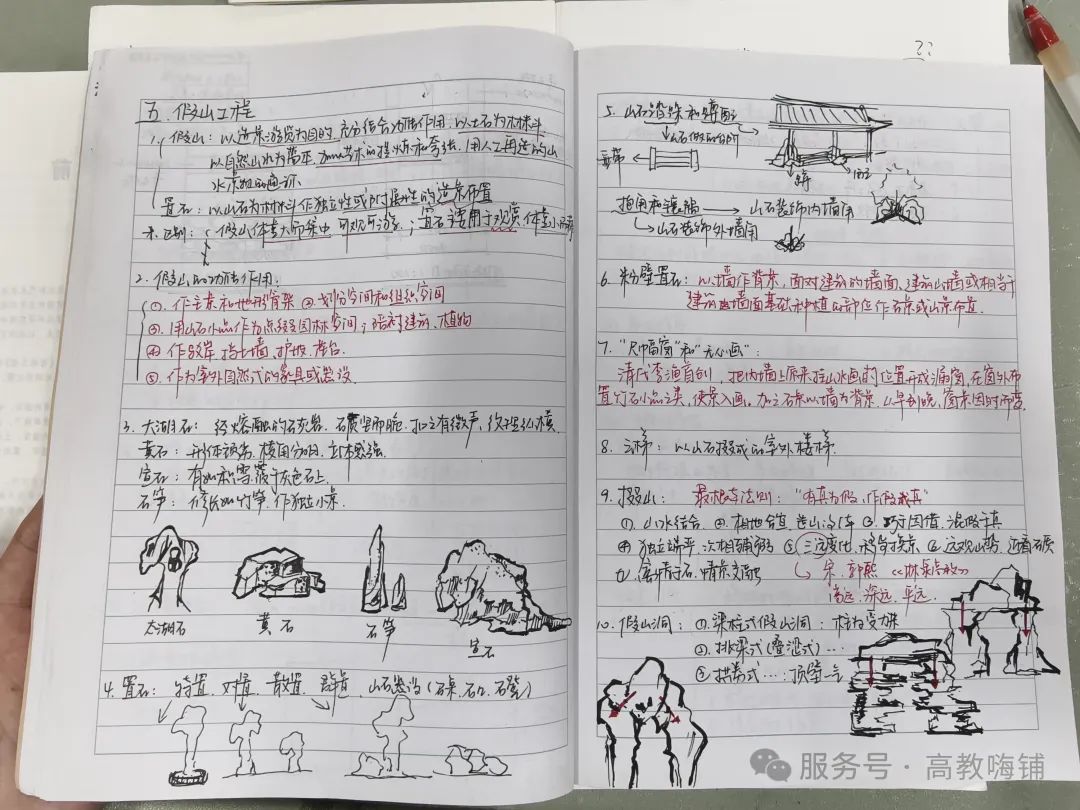 五、假山工程
1. 假山：以造景游览为目的，充分结合功能作用，以土石为材料，
以自然山水为蓝本，加以艺术的提炼和夸张，用人工再造的山
水景物的通称
置石：以山石为材料作独立性或附属性的造景布置
区别：假山体大而集中 可观可游；置石主要用于观赏，体量小而
2. 假山的功能作用：
①. 作主景和地形骨架 ② 划分空间和组织空间
③. 用山石小品作为点缀园林空间；陪衬建筑、植物
④ 作驳岸、挡土墙、护坡、花台
⑤. 作为室外自然式的家具或器设
3. 太湖石：经熔融的石灰岩，石质坚而脆，扣之有微声，纹理纵横
黄石：形体顽夯，棱角分明，立体感强
宣石：有如积雪覆于灰色石上
石笋：修长如竹笋，作独立小景
太湖石 黄石 石笋 宣石
4. 置石：特置、对置、散置、群置、山石器设（石桌、石凳）
5. 山石踏跺和蹲配
山石做的台阶
蹲 配
抱角和镶隅 山石装饰内墙角
山石装饰外墙角
6. 粉壁置石：以墙作背景，面对建筑的墙面，建筑山墙或相当于
建筑墙面基础种植的部位作石景或山景布置
7. "尺幅窗"和"无心画"：
清代李渔首创，把内墙上原来挂山水画的位置开成漏窗，在窗外布
置竹石小品之类，使景入画。加之石景以墙为背景，从早到晚，窗景因时而变
8. 云梯：以山石掇成的室外楼梯
9. 掇山：最根本法则："有真为假，作假成真"
①. 山水结合 ②. 相地合宜，造山 ③. 巧于因借，混假于真
④ 独立端严，次相辅弼 ⑤ 三远变化，移步换景 ⑥ 远观山势，近看石质
七、寓情于石，情景交融 宋·郭熙《林泉高致》
高远、深远、平远
10. 假山洞：①. 梁柱式假山洞：柱为受力
②. 挑梁式（叠涩式）…
③ 拱券式…顶壁一气
服务号·高教嗨铺